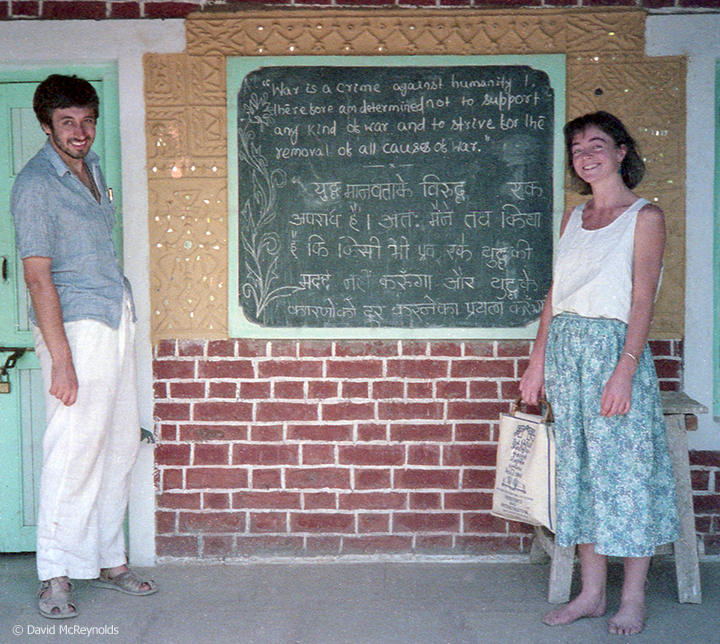 "War is a crime against humanity !
Therefore am determined not to support
any kind of war and to strive for the
removal of all causes of war."
"युद्ध मानवताके विरुद्ध एक
अपराध है। अतः मैंने तय किया
है कि किसी भी प्रकारके युद्धकी
मदद नहीं करूँगा और युद्धके
कारणोंको दूर करनेका प्रयत्न करूँगा
© David McReynolds